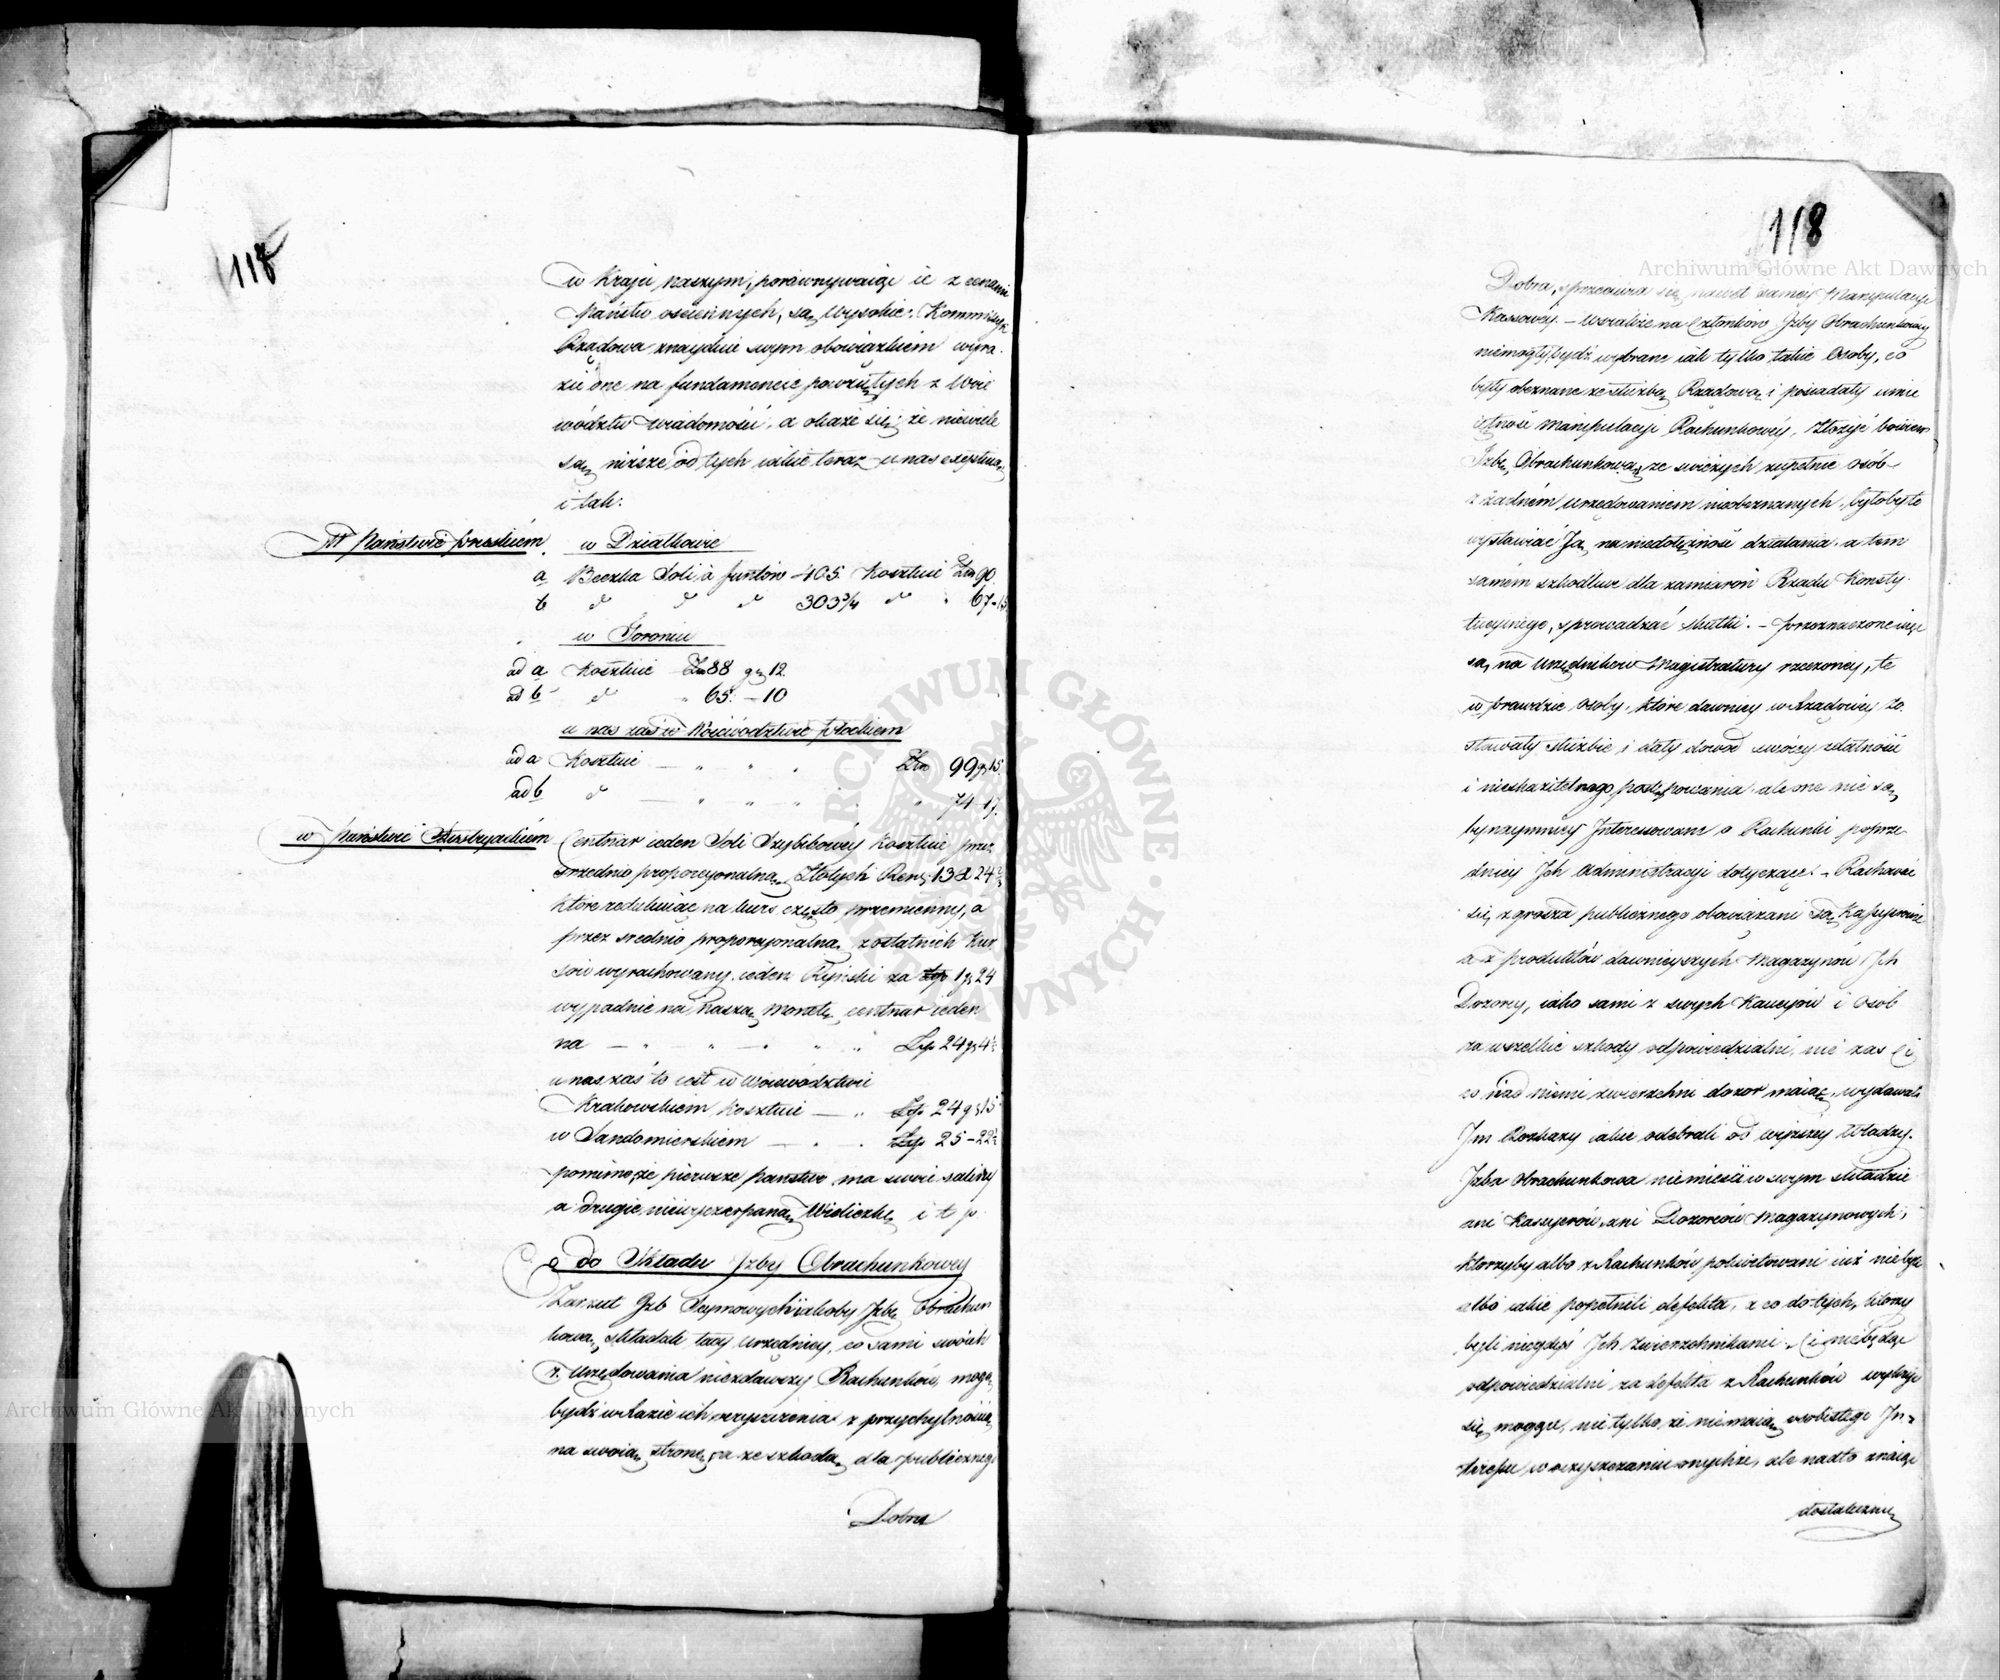 118
w Kraju naszym, porównywaiąc ie z cenami
Państw ościennych, są wysokie. Kommissya
Rządowa znayduie swym obowiązkiem wyra-
zić one na fundamencie powziętych z Woie
wództw wiadomości, a okaże się, że niewiele
są niższe od tych iakie teraz u nas exystuią
i tak:
W Państwie Pruskiem w Działkowie
a Beczka Soli à funtów 405. Kosztuie Złp 90.
b d° d° d° 303 3/4 d° " 67-15
w Toroniu
ad a Kosztuie Złp 88 gr 12.
ad b d° " 65. - 10
u nas zaś w Woiewództwie Płockiem
ad a Kosztuie — " " " Złp 99 gr 15.
ad b d° — " " " " 74-17.
w Państwie Austryackiém Centnar ieden Soli Szybikowéy Kosztuie przez
srzednio proporcyonalną Złotych Reń: 13 24
które redukuiąc na kurs często przemienny, a
przez srednio proporcyonalną z ostatnich Kur
sów wyrachowany, ieden Ryński za Złp 1 gr 24
wypadnie na naszą monetę, centnar ieden
na — " " — " " Złp 24 gr 4 1/2
u nas zaś to iest w Woiewództwie
Krakowskiem kosztuie — " Złp 24 gr 15
w Sandomierskiem — " . Złp 25-22 1/2
pomimo, że pierwsze państwo ma swoie saliny
a drugie niewyczerpaną Wieliczkę i t p.
do Składu Izby Obrachunkowéy
Zarzut Izb Seymowych iakoby Izbę Obrachun
kową składali tacy urzędnicy, co sami swoich
z Urzędowania niezdawszy Rachunków, mogą
bydź w Razie ich oczyszczenia z przychylnością
na swoią stronę, a ze szkodą dla publicznego
Dobra
118
Dobra, sprzeciwia się nawet saméy Manipulacyi
Kassowéy. — Wszakże na Członków Izby Obrachunkowéy
niemogły bydź wybrane iak tylko takie Osoby, co
były obeznane ze służbą Rządową i posiadały umie
iętność manipulacyi Rachunkowéy, złożyć bowiem
Izbę Obrachunkową ze swieżych zupełnie osób
z żadném urzędowaniem nieobeznanych, byłoby to
wystawiać Ją na niedołężność działania, a tem
samém szkodliwe dla zamiarów Rządu Konsty-
tucyinego, sprowadzać skutki. — Przeznaczone więc
są na Urzędników Magistratury rzeczonéy, te
w prawdzie osoby, które dawniéy w Rządowéy zo
stawały służbie i dały dowód swoiéy zdatności
i nieskazitelnego postępowania, ale one nie są
bynaymniéy Interessowane o Rachunki poprze-
dniéy Ich Administracyi dotyczące. — Rachować
się z grosza publicznego obowiązani są Kassyerowie
a z produktów dawnieyszych Magazynów Ich
Dozorcy, iako sami z swych Kaucyów i osób
za wszelkie szkody odpowiedzialni, nie zas Ci
co nad niemi zwierzchni dozor maiąc, wydawali
Im Rozkazy iakie odebrali od wyższéy Władzy.
Izba Obrachunkowa niemieści w swym składzie
ani Kassyerów, ani Dozorców Magazynowych,
którzyby albo z Rachunków pokwitowani iuż nie byli
albo iakie popełnili defekta, a co do tych, którzy
byli niegdyś Ich Zwierzchnikami, Ci niebędąc
odpowiedzialni za defekta z Rachunków wykryć
się mogące, nie tylko, że niemaią osobistego In-
teressu, w oczyszczaniu onychże, ale nadto znaiąc
dostatecznie